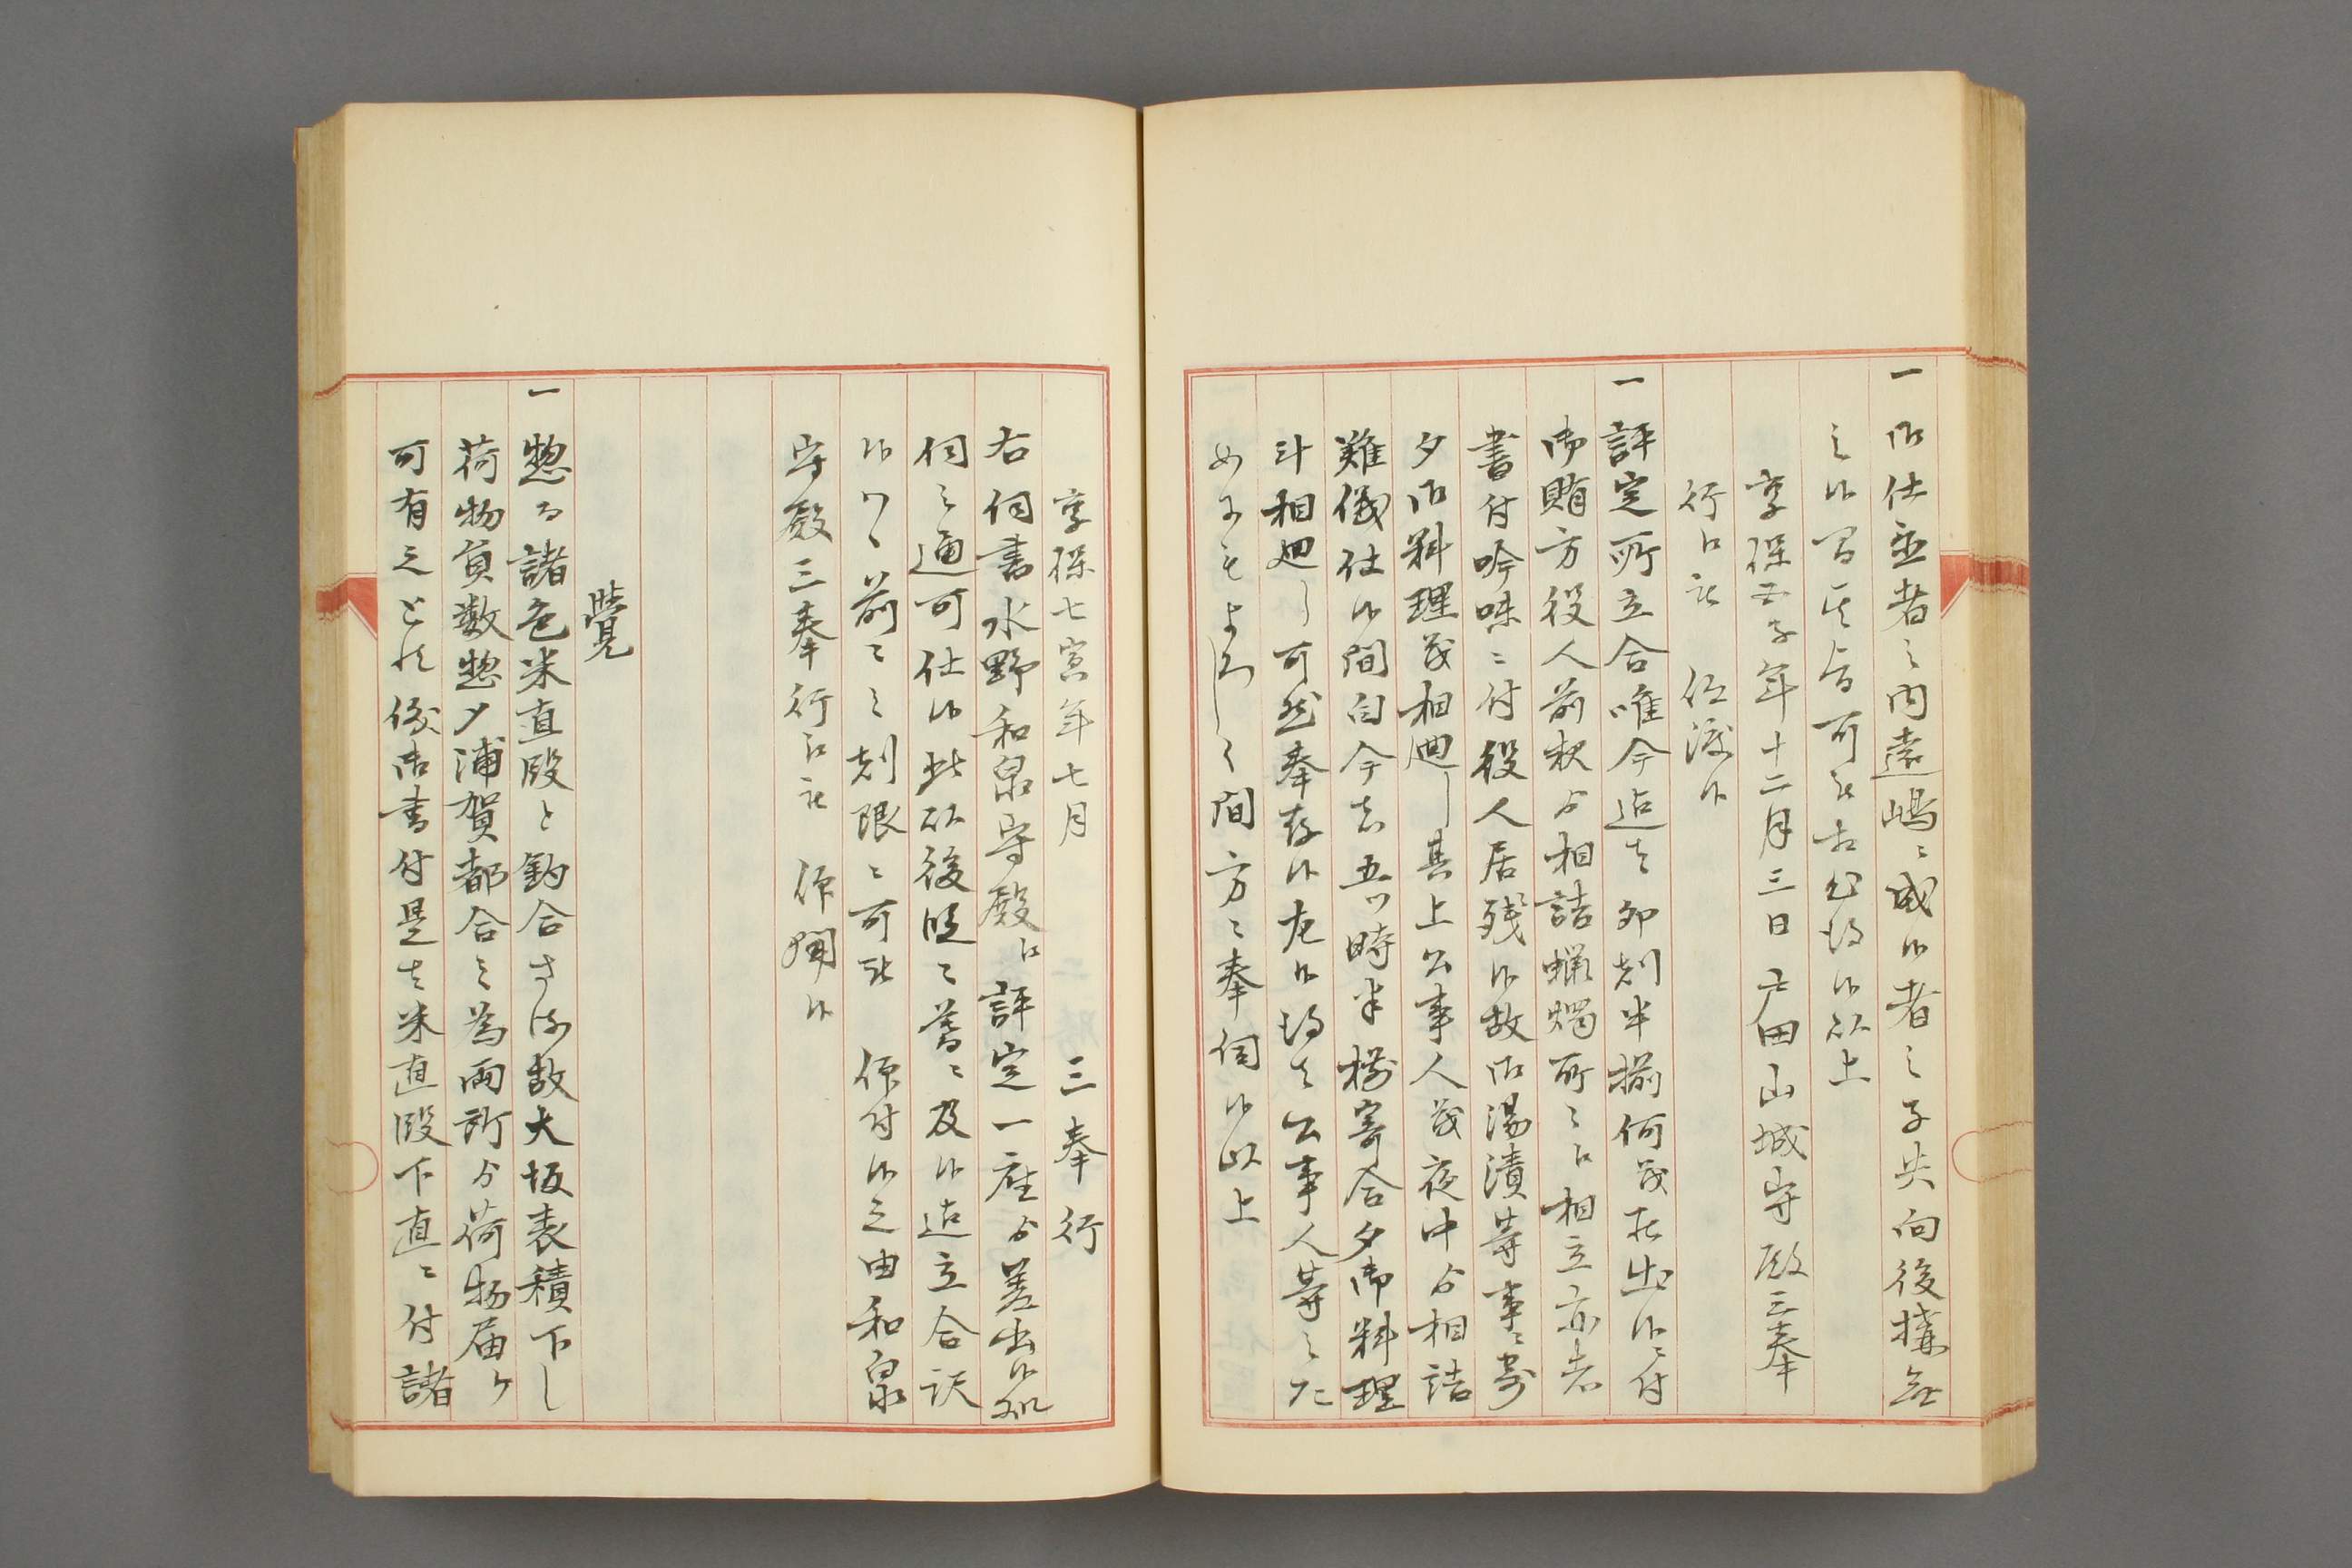 一御仕置者之内遠嶋ニ成候者之子共向後構無
之候間其旨可被相心得候以上
享保五子年十二月三日戸田山城守殿三奉
行江被仰渡候
一評定所立合唯今迄者卯刻半揃何茂在出候ニ付
御賄方役人前秋ゟ相詰蝋燭所々江相立亦者
書付吟味ニ付役人居残候故御湯漬等事ニ寄
夕御料理茂相廻し其上公事人茂夜中ゟ相詰
難儀仕候間自今者五ツ時半揃寄合夕御料理
斗相廻し可然奉存候左候得者公事人等之た
めにもよろしく間方ニ奉伺候以上
享保七寅年七月 三奉行
右伺書水野和泉守殿江評定一座ゟ差出候処
伺之通可仕候此以後晩ニ暮ニ及候迄立合訳
候ハヽ前々之刻限ニ可致 仰付候之由和泉
守殿三奉行江被 仰聞候
覚
一惣而諸色米直段と釣合さる故大坂表積下し
荷物員数惣〆浦賀都合之為両所ゟ荷物届ケ
可有之と被仰書付是者米直段下直ニ付諸